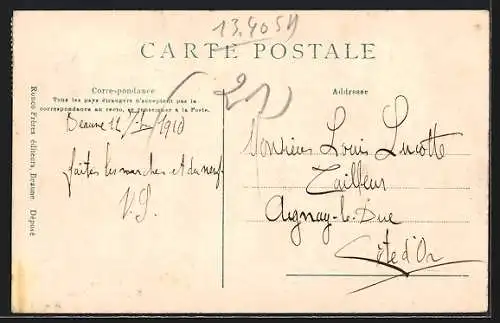 13.405H
CARTE POSTALE
Correspondance
Tous les pays étrangers n'acceptent pas la
correspondance au recto, se renseigner à la Poste.
Beaune 11/5/1910
faites les marches et du neuf
V.S.
Ronco Frères éditeurs, Beaune Déposé
Adresse
Monsieur Louis Lucotte
Tailleur
Aignay-le-Duc
Côte d'Or